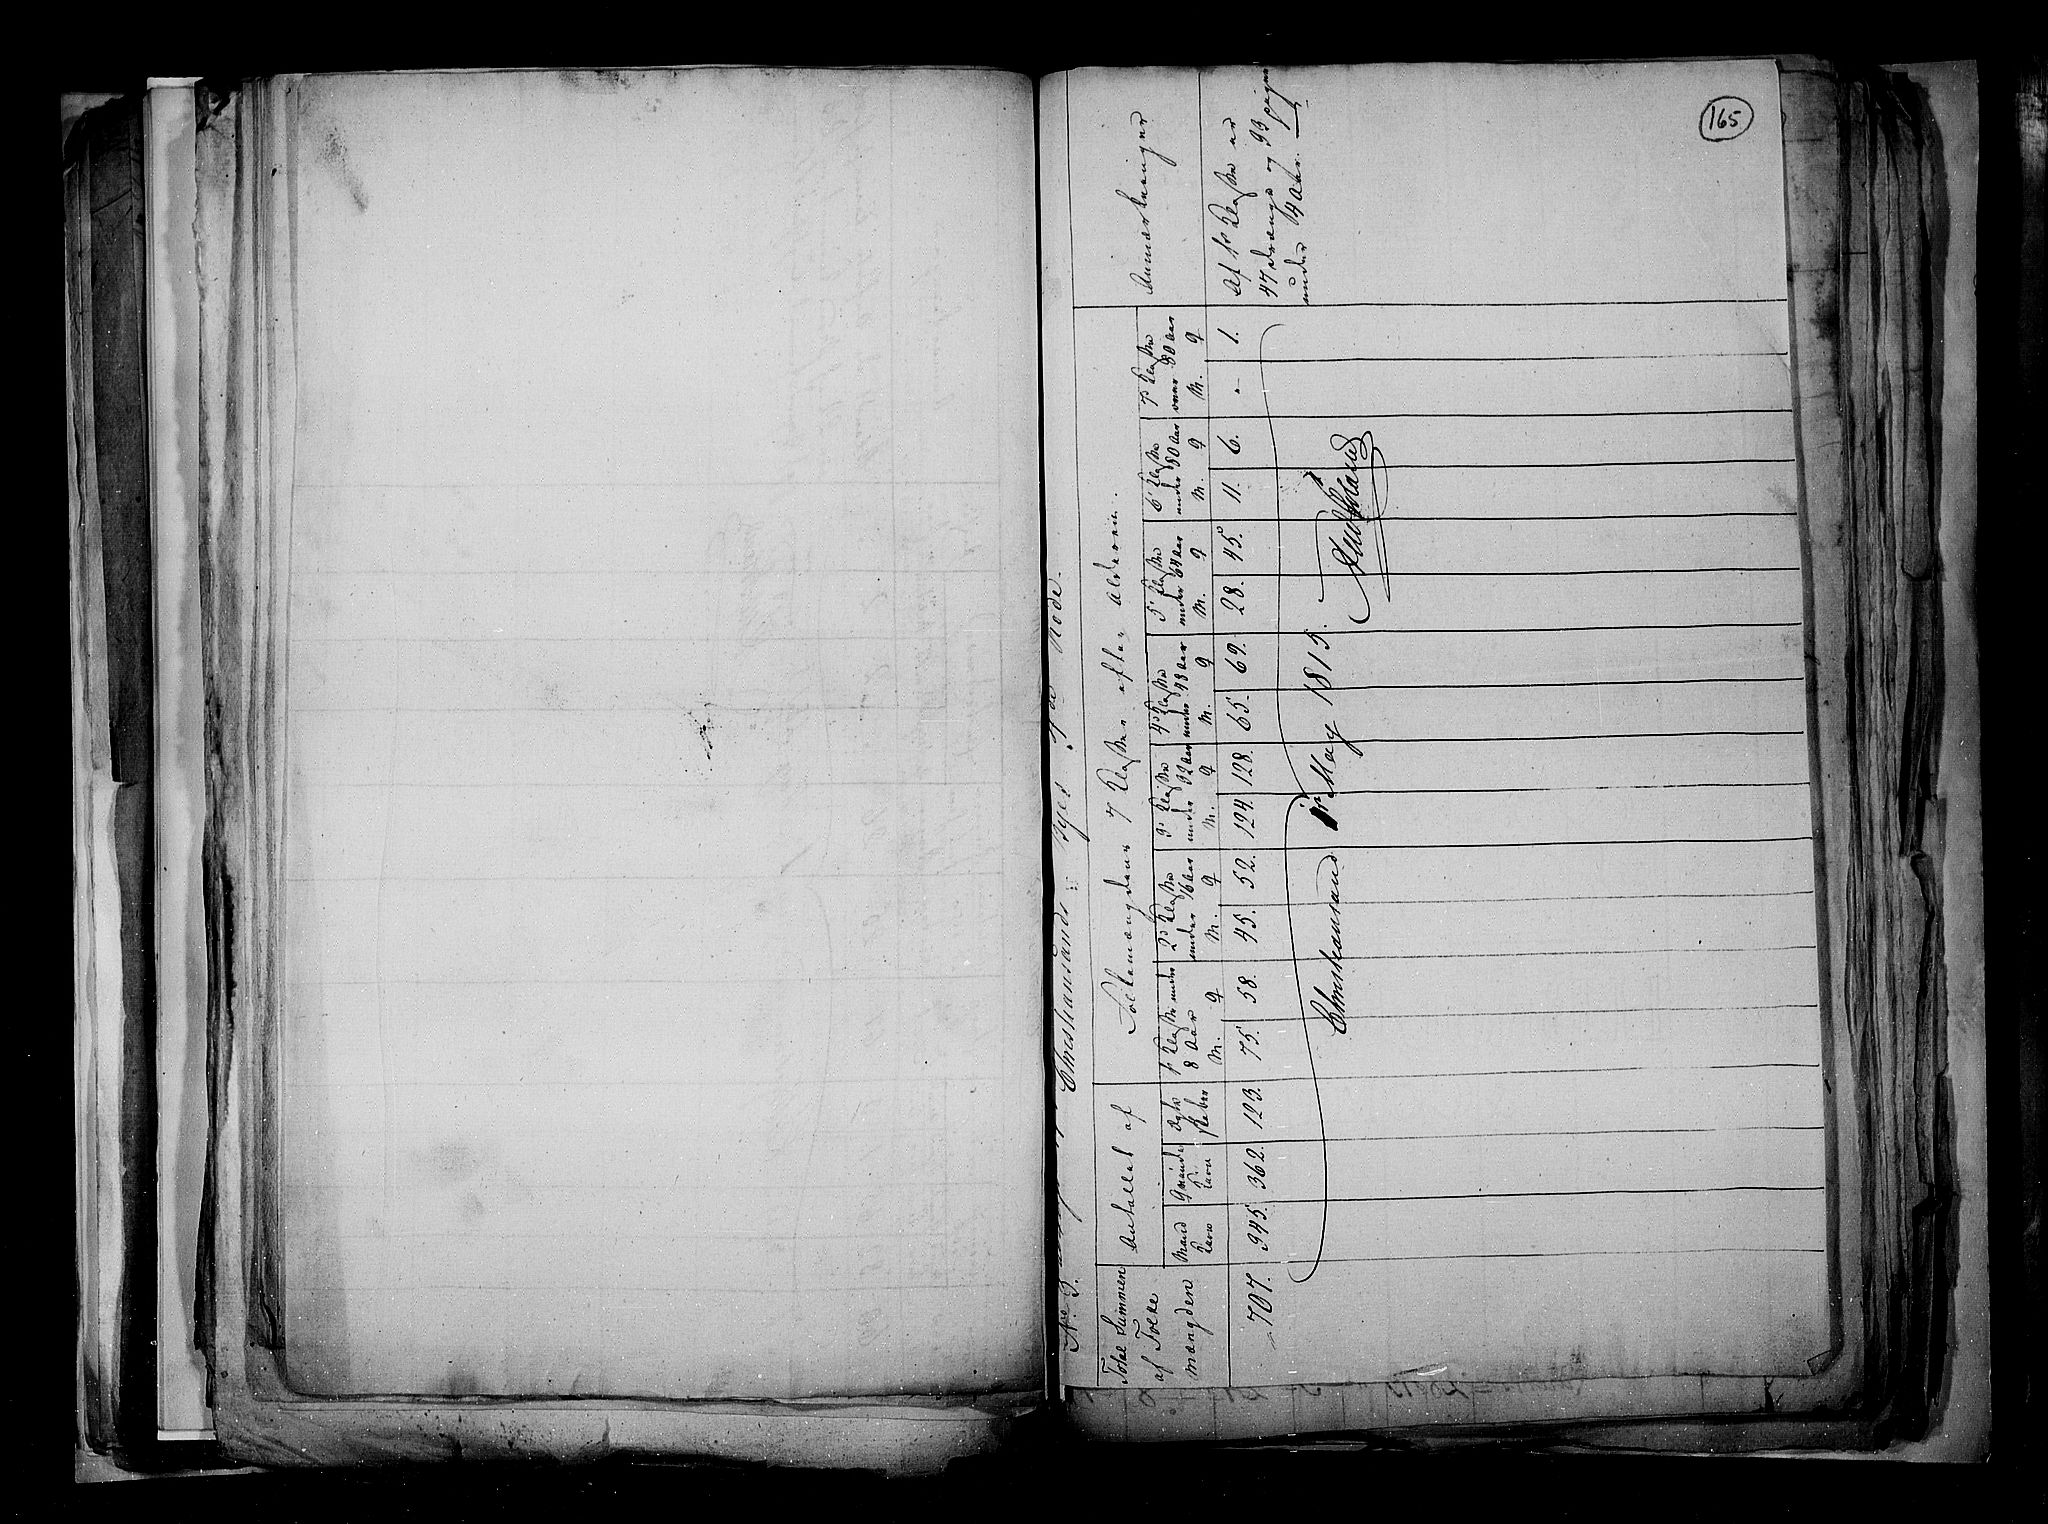 165
No 3. Christiansands Byes 4de Rode.
Total Summen af Folke mængden
Antallet af
Mand Kiøn
Qvinde Kiøn
Ægte skaber
Folkemængdens 7 Klasser efter Alderen.
1e Klasse under 8 Aar
M. Q
2e Klasse under 16 Aar
M. Q
3e Klasse under 32 Aar
M. Q
4e Klasse under 48 Aar
M. Q
5e Klasse under 64 Aar
M. Q
6e Klasse under 80 Aar
M. Q
7e Klasse over 80 Aar
M. Q
Anmærkninger
707. 345. 362. 123. 75. 58. 45. 52. 124. 128. 65. 69. 28. 45. 11. 6. - 1.
Af 1e Klasse er
47 drenge og 33 piger
under 4 Aar.
Christiansand May 1815.